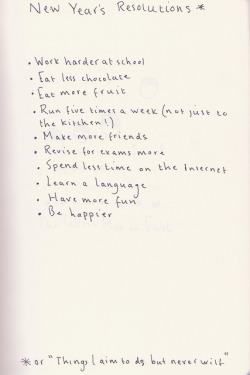 New Year's Resolutions *
• Work harder at school
• Eat less chocolate
• Eat more fruit
• Run five times a week (not just to
the kitchen!)
• Make more friends
• Revise for exams more
• Spend less time on the Internet
• Learn a language
• Have more fun
• Be happier
* or "Things I aim to do but never will"